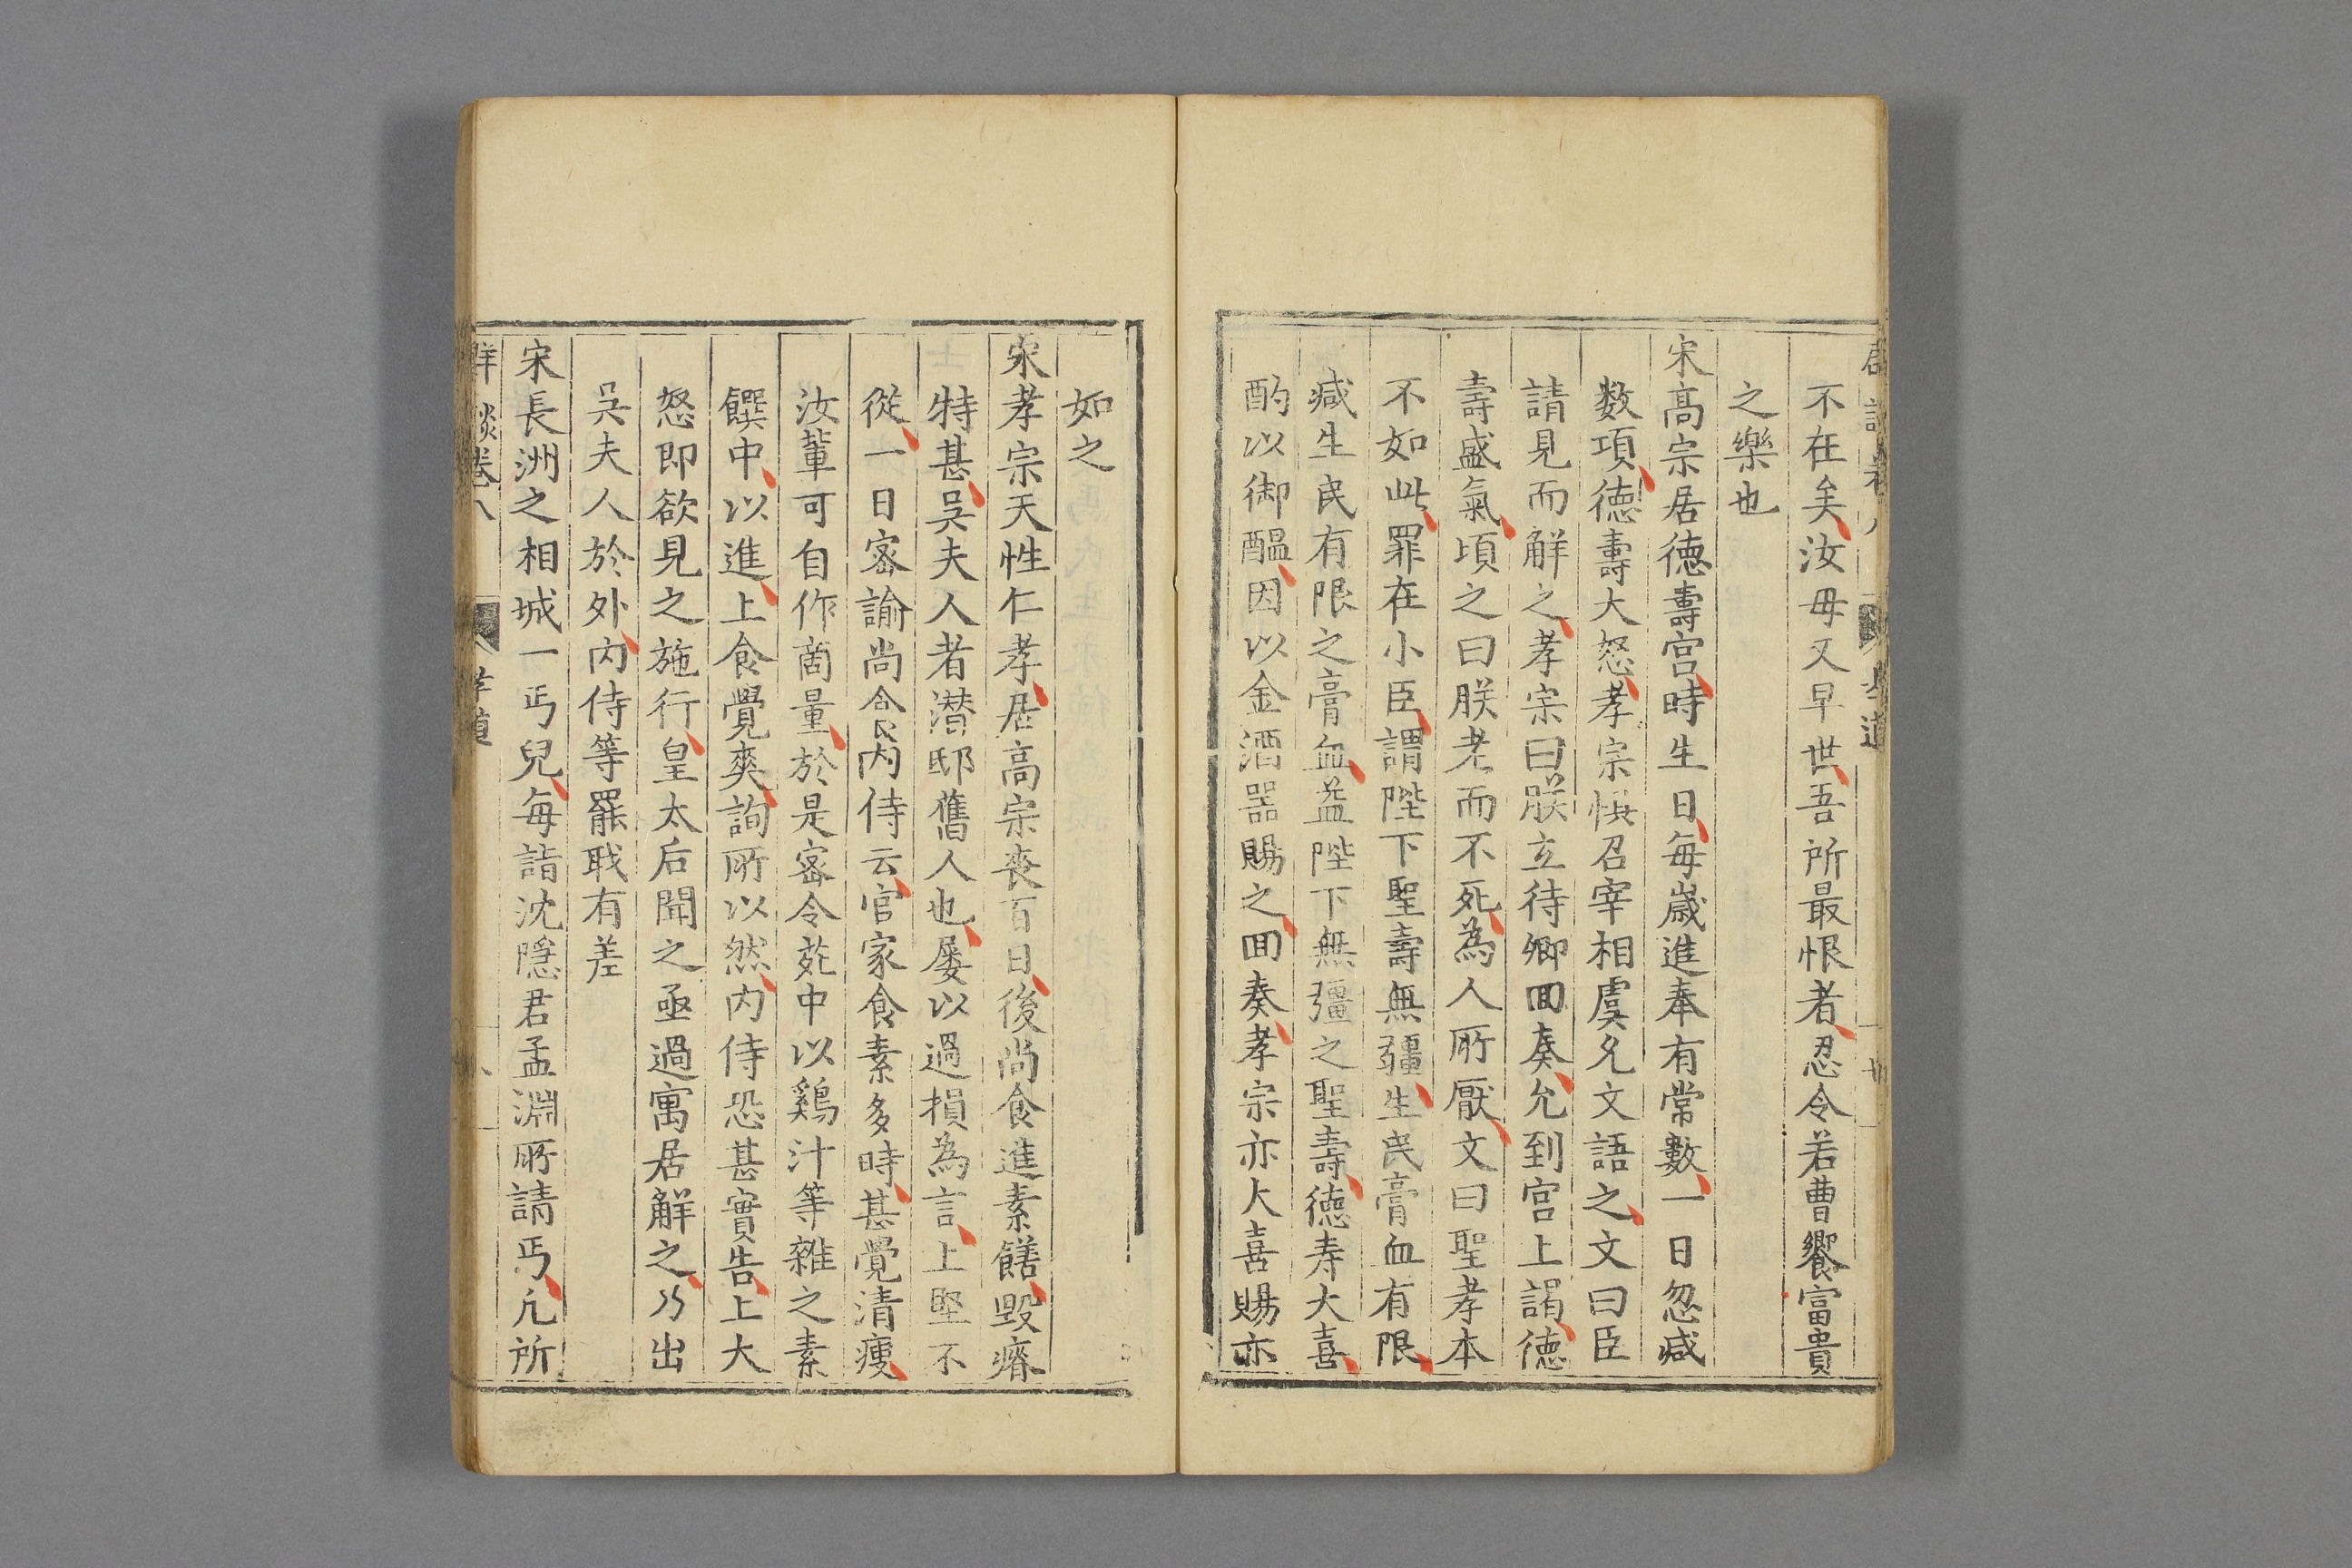 不在矣汝毋又早世吾所最恨者忍令若曹饗富貴
之樂也
宋高宗居德壽宫時生日每歲進奉有常數一日忽减
数項德壽大怒孝宗惧召宰相虞允文語之文曰臣
請見而觧之孝宗曰朕立待卿囬奏允到宫上謁德
壽盛氣頃之曰朕老而不死為人所厭文曰聖孝本
不如此罪在小臣謂陛下聖壽無疆生民膏血有限
减生民有限之膏血益陛下無疆之聖壽德寿大喜
酌以御醖因以金酒噐賜之囬奏孝宗亦大喜賜亦
如之
宋孝宗天性仁孝居高宗喪百日後尚食進素饍毀瘠
特甚吴夫人者潜邸舊人也屡以過損為言上堅不
從一日密諭尚食内侍云官家食素多時甚覺清瘦
汝輩可自作啇量於是密令苑中以鷄汁等雜之素
饌中以進上食覺爽詢所以然内侍恐甚實告上大
怒即欲見之施行皇太后聞之亟過寓居觧之乃出
吴夫人於外内侍等罷戝有差
宋長洲之相城一丐兒每詣沈隱君孟淵所請丐凢所
群談卷八 孝道